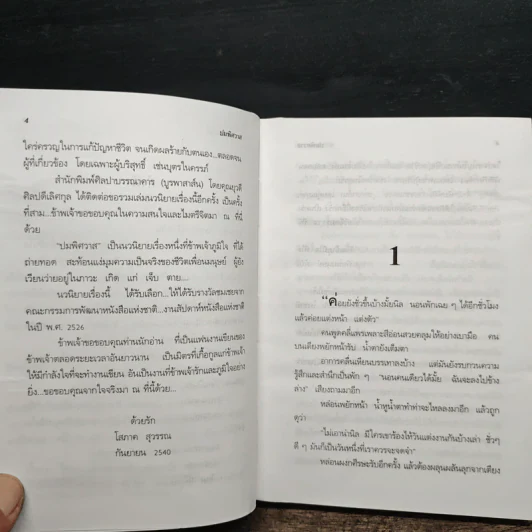 4
ปมพิศวาส
ใคร่ครวญในการแก้ปัญหาชีวิต จนเกิดผลร้ายกับตนเอง...ตลอดจน
ผู้ที่เกี่ยวข้อง โดยเฉพาะผู้บริสุทธิ์ เช่นบุตรในครรภ์
สำนักพิมพ์ศิลปาบรรณาคาร (บูรพาสาส์น) โดยคุณฤดี
ศิลปดีเลิศกุล ได้ติดต่อขอรวมเล่มนวนิยายเรื่องนี้อีกครั้ง เป็นครั้ง
ที่สาม...ข้าพเจ้าขอขอบคุณในความสนใจและไมตรีจิตมา ณ ที่นี้
ด้วย
"ปมพิศวาส" เป็นนวนิยายเรื่องหนึ่งที่ข้าพเจ้าภูมิใจ ที่ได้
ถ่ายทอด สะท้อนแง่มุมความเป็นจริงของชีวิตเพื่อนมนุษย์ ผู้ยัง
เวียนว่ายอยู่ในภาวะ เกิด แก่ เจ็บ ตาย...
นวนิยายเรื่องนี้ ได้รับเลือก...ให้ได้รับรางวัลชมเชยจาก
คณะกรรมการการพัฒนาหนังสือแห่งชาติ...งานสัปดาห์หนังสือแห่งชาติ
ในปี พ.ศ. 2526
ข้าพเจ้าขอขอบคุณท่านนักอ่าน ที่เป็นแฟนงานเขียนของ
ข้าพเจ้าตลอดระยะเวลาอันยาวนาน เป็นมิตรที่เกื้อกูลแก่ข้าพเจ้า
ให้มีกำลังใจที่จะทำงานเขียน อันเป็นงานที่ข้าพเจ้ารักและภูมิใจอย่าง
ยิ่ง...ขอขอบคุณจากใจจริงมา ณ ที่นี้ด้วย...
ด้วยรัก
โสภาค สุวรรณ
กันยายน 2540
1
"ค่อยยังชั่วขึ้นบ้างมั้ยนิล นอนพักเฉย ๆ ได้อีกชั่วโมง
แล้วค่อยแต่งหน้า แต่งตัว"
คนพูดคลี่แพรเพลาะสีอ่อนสวยคลุมให้อย่างเบามือ คน
บนเตียงพยักหน้ารับ น้ำตายังเต็มตา
อาการคลื่นเหียนบรรเทาลงบ้าง แต่มันยังรบกวนความ
รู้สึกและสำนึกเป็นพัก ๆ "นอนคนเดียวได้มั้ย ฉันจะลงไปข้าง
ล่าง" เสียงถามมาอีก
หล่อนพยักหน้า น้ำหูน้ำตาทำท่าจะไหลลงมาอีก แล้วถูก
ดุว่า
"ไม่เอาน่านิล มีใครเขาร้องไห้วันแต่งงานกันบ้างเล่า ชั่วๆ
ดี ๆ มันก็เป็นวันหนึ่งที่เราควรจะจดจำ"
หล่อนผงกศีรษะรับอีกครั้ง แล้วต้องผลุนผลันลุกจากเตียง